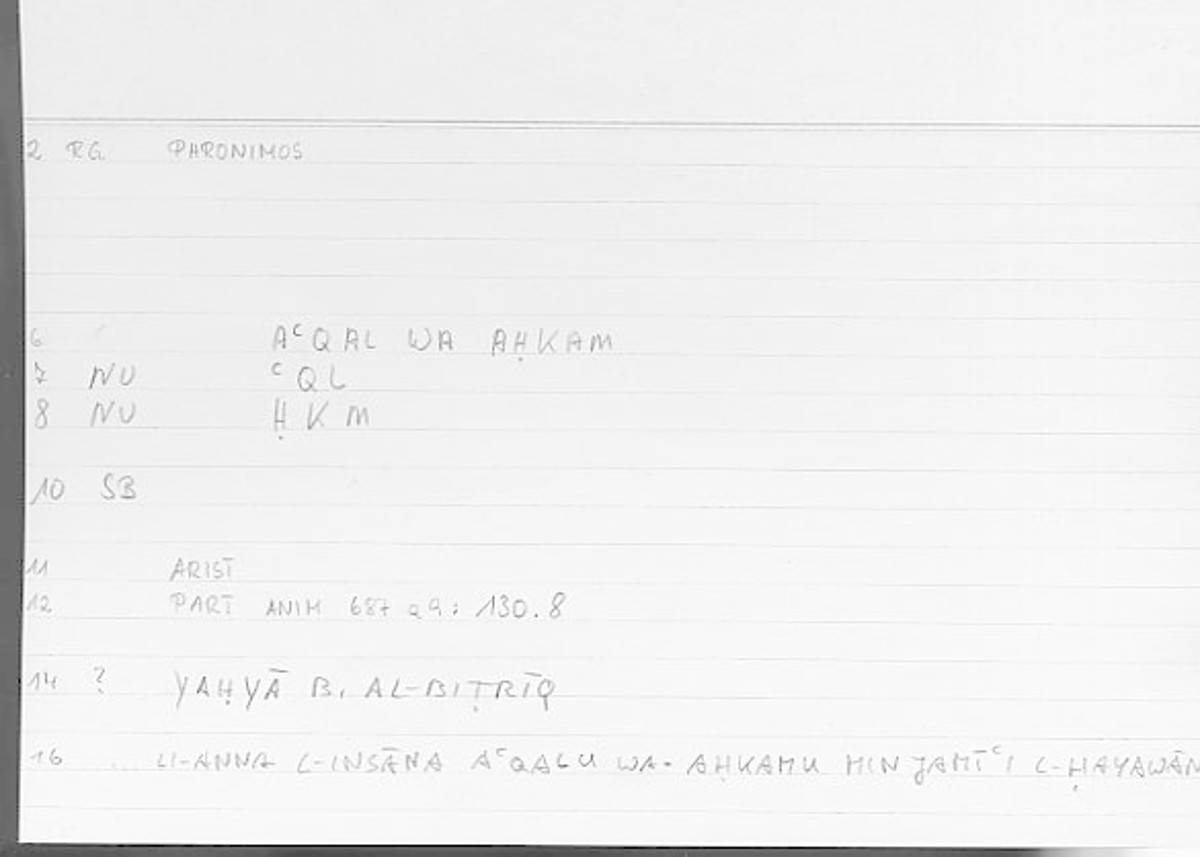 2 RG PHRONIMOS
6 AʿQAL WA AḤKAM
7 NU ʿQL
8 NU ḤKM
10 SB
11 ARIST
12 PART ANIM 687 a9: 130.8
14 ? YAḤYĀ B. AL-BIṬRĪQ
16 ... LI-ANNA L-INSĀNA AʿQALU WA-AḤKAMU MIN JAMĪʿI L-ḤAYAWĀN